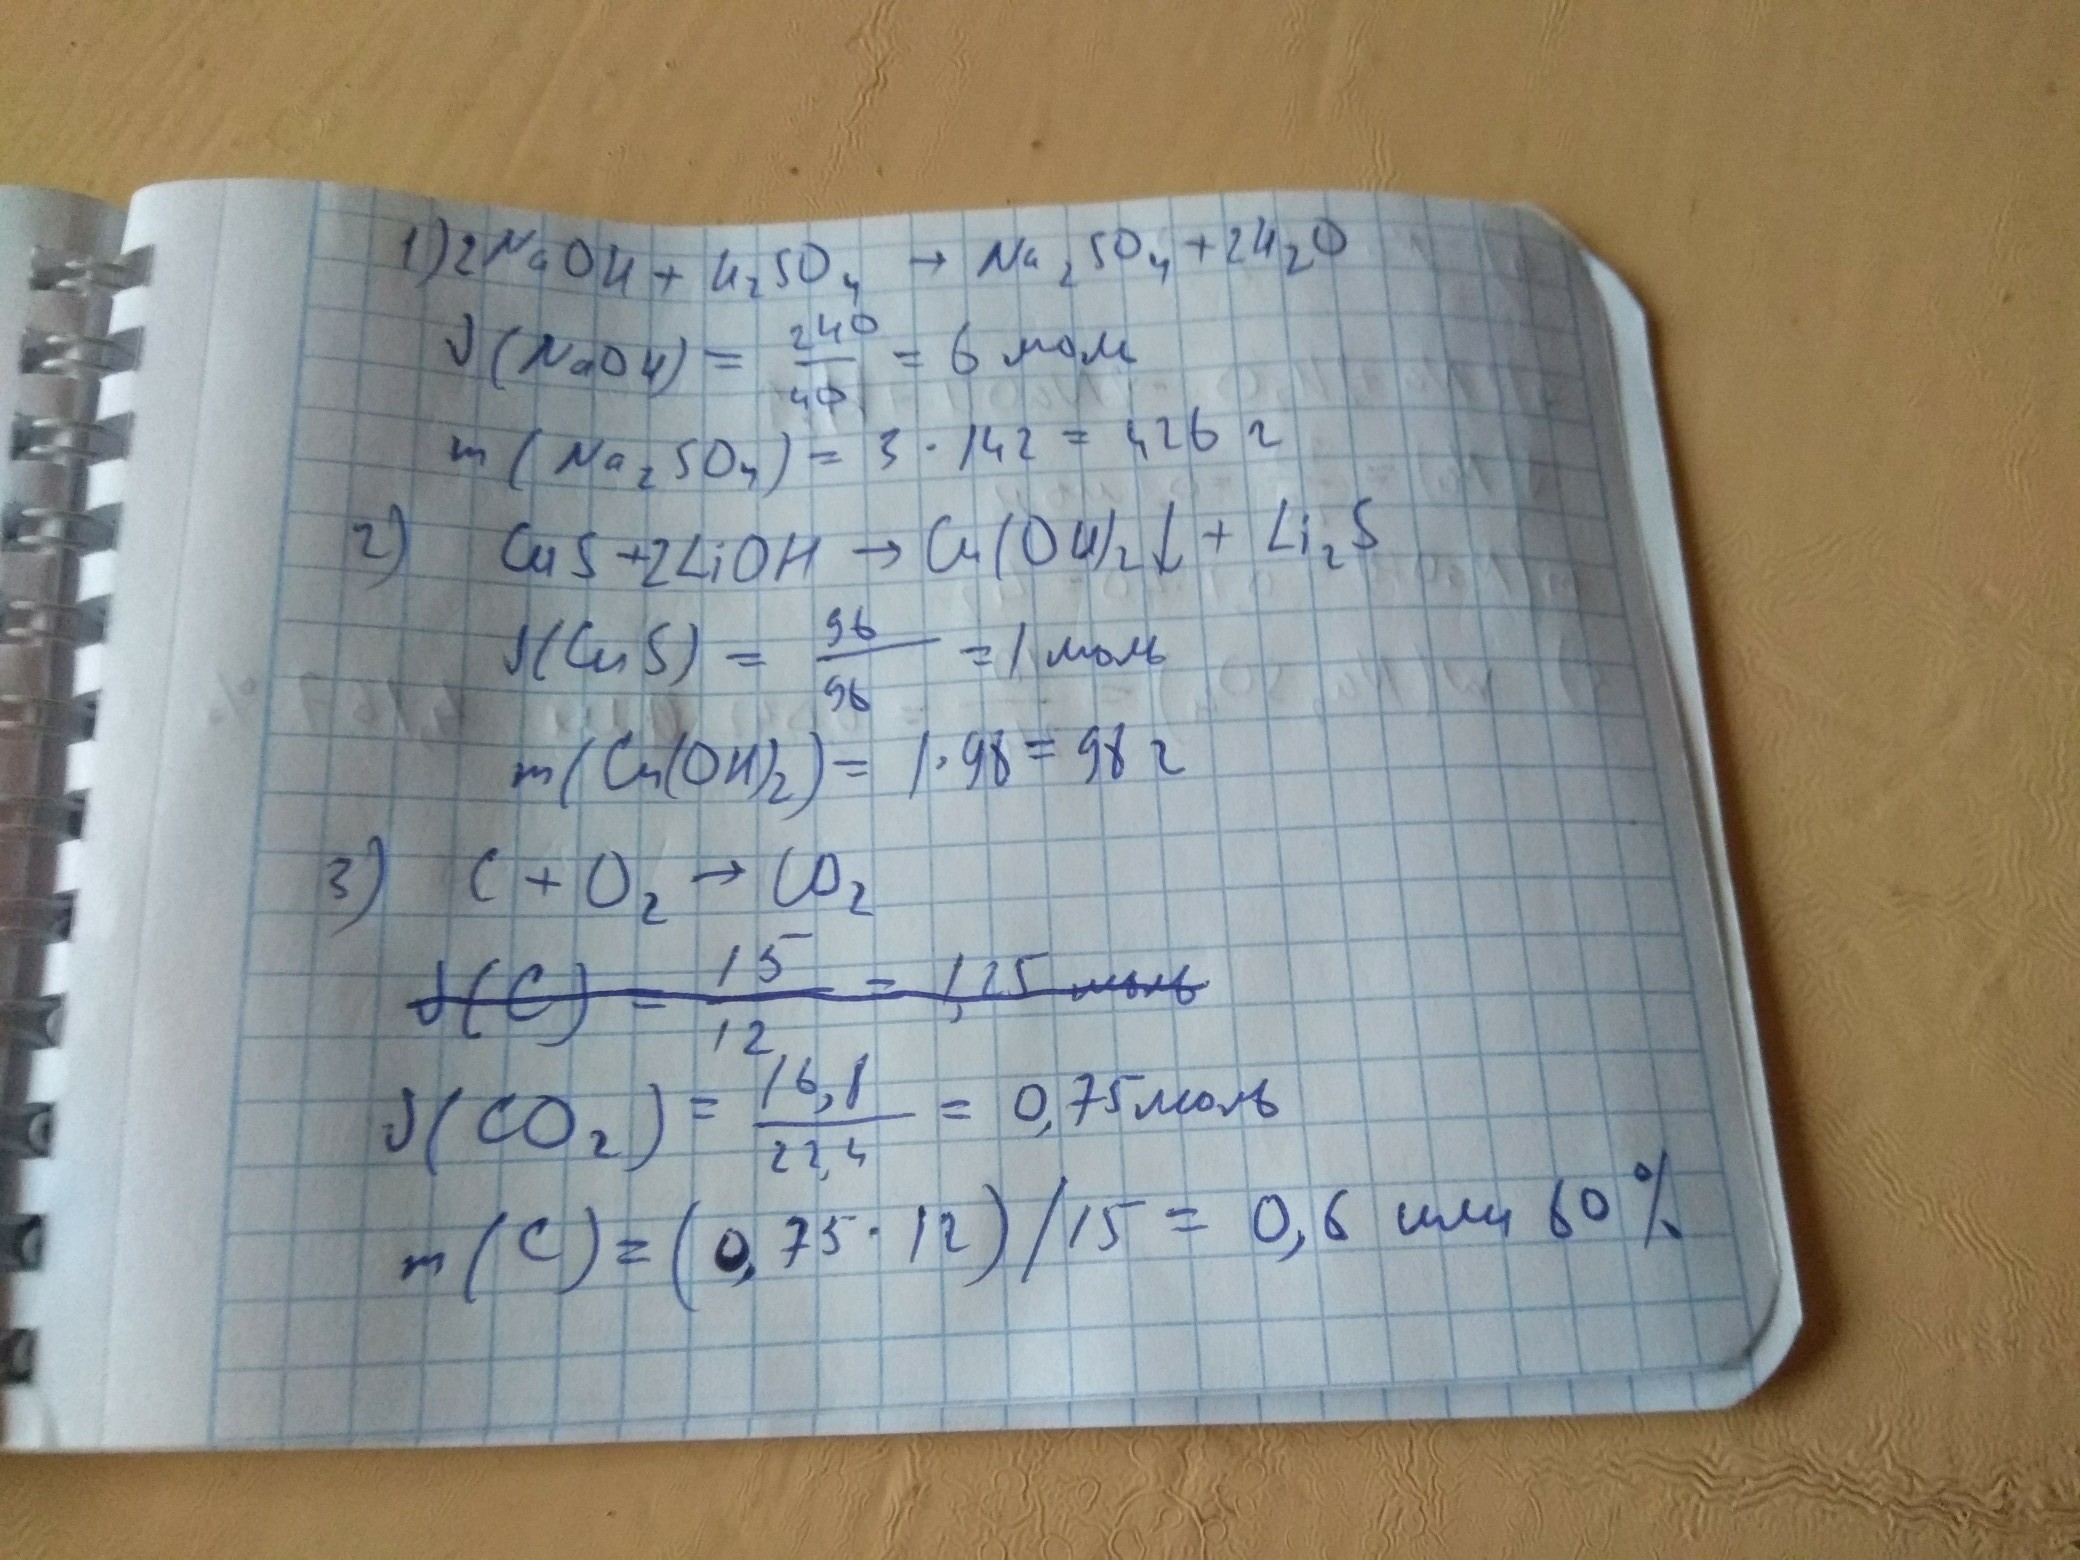 1) 2NaOH + H₂SO₄ → Na₂SO₄ + 2H₂O
ν(NaOH) = 240/40 = 6 моль
m(Na₂SO₄) = 3 · 142 = 426 г
2) CuS + 2LiOH → Cu(OH)₂↓ + Li₂S
ν(CuS) = 96/96 = 1 моль
m(Cu(OH)₂) = 1 · 98 = 98 г
3) C + O₂ → CO₂
ν(C) = 15/12 = 1,25 моль
ν(CO₂) = 16,8/22,4 = 0,75 моль
m(C) = (0,75 · 12)/15 = 0,6 или 60%